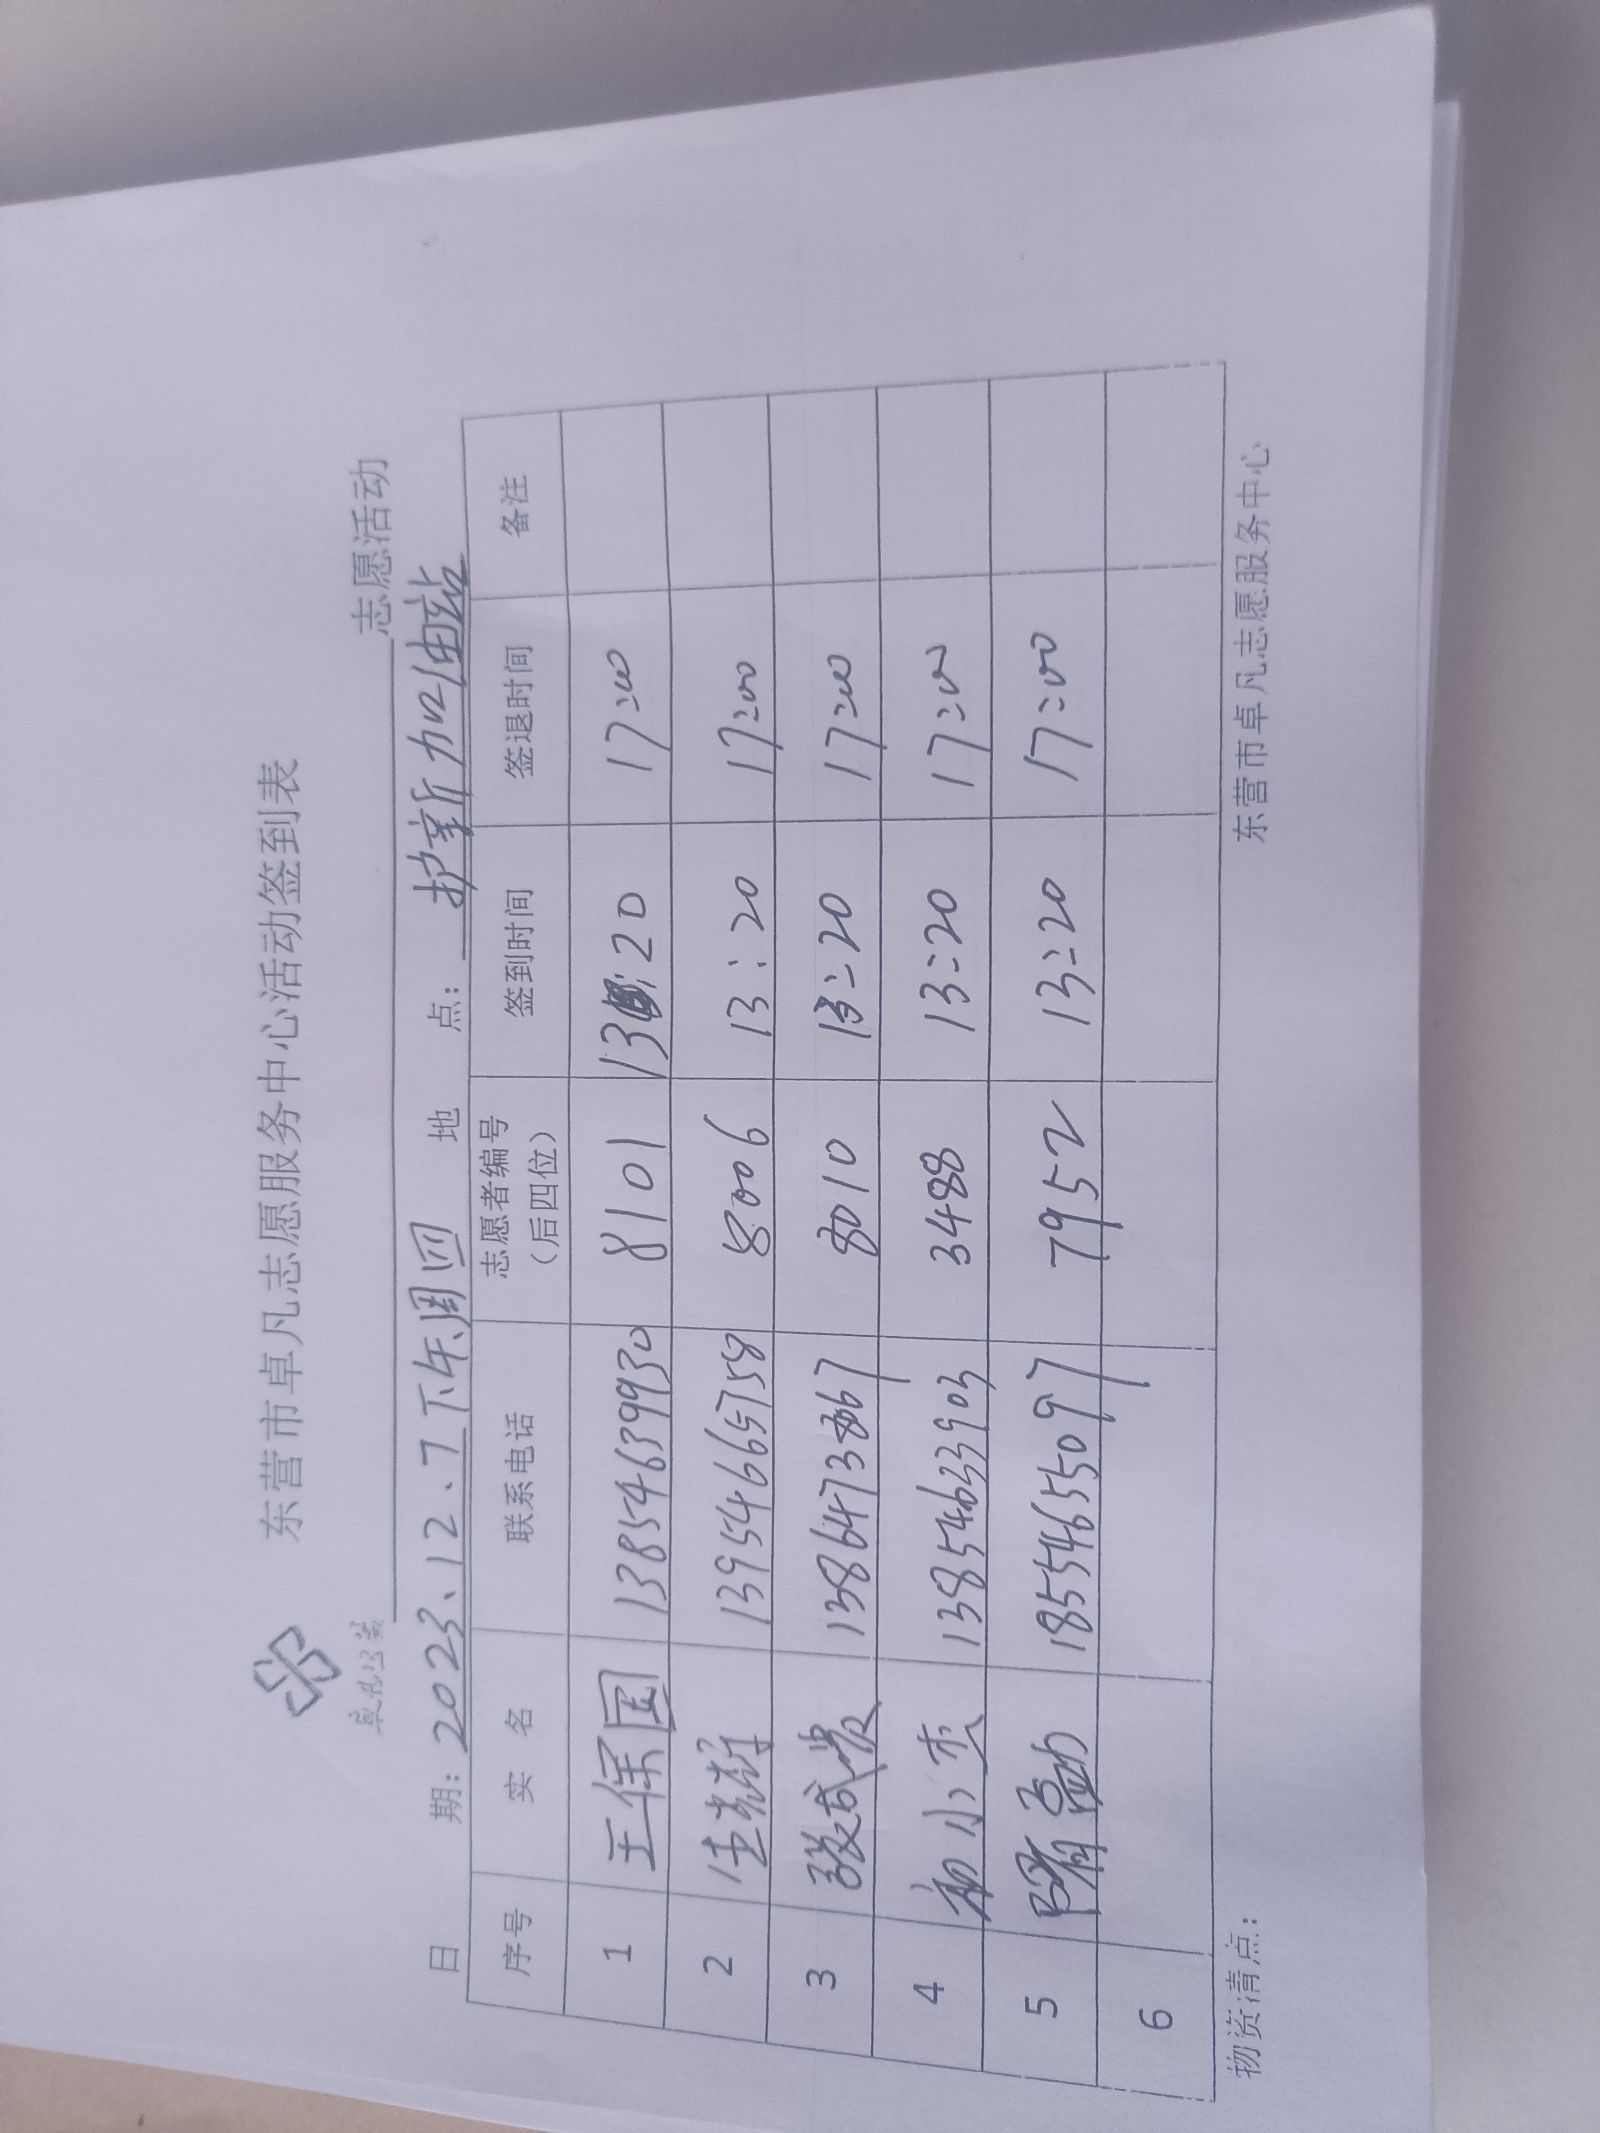 东营市卓凡志愿服务中心活动签到表
卓凡公益
志愿活动
日 期：2023.12.7下午周四 地 点：护新加油站
序号 实 名 联系电话 志愿者编号（后四位） 签到时间 签退时间 备注
1 王保国 13854639930 8101 13:20 17:00
2 任耀 13954665758 8006 13:20 17:00
3 13864738667 8010 13:20 17:00
4 初小杰 13854633903 3488 13:20 17:00
5 18554655097 7952 13:20 17:00
6
物资清点： 东营市卓凡志愿服务中心